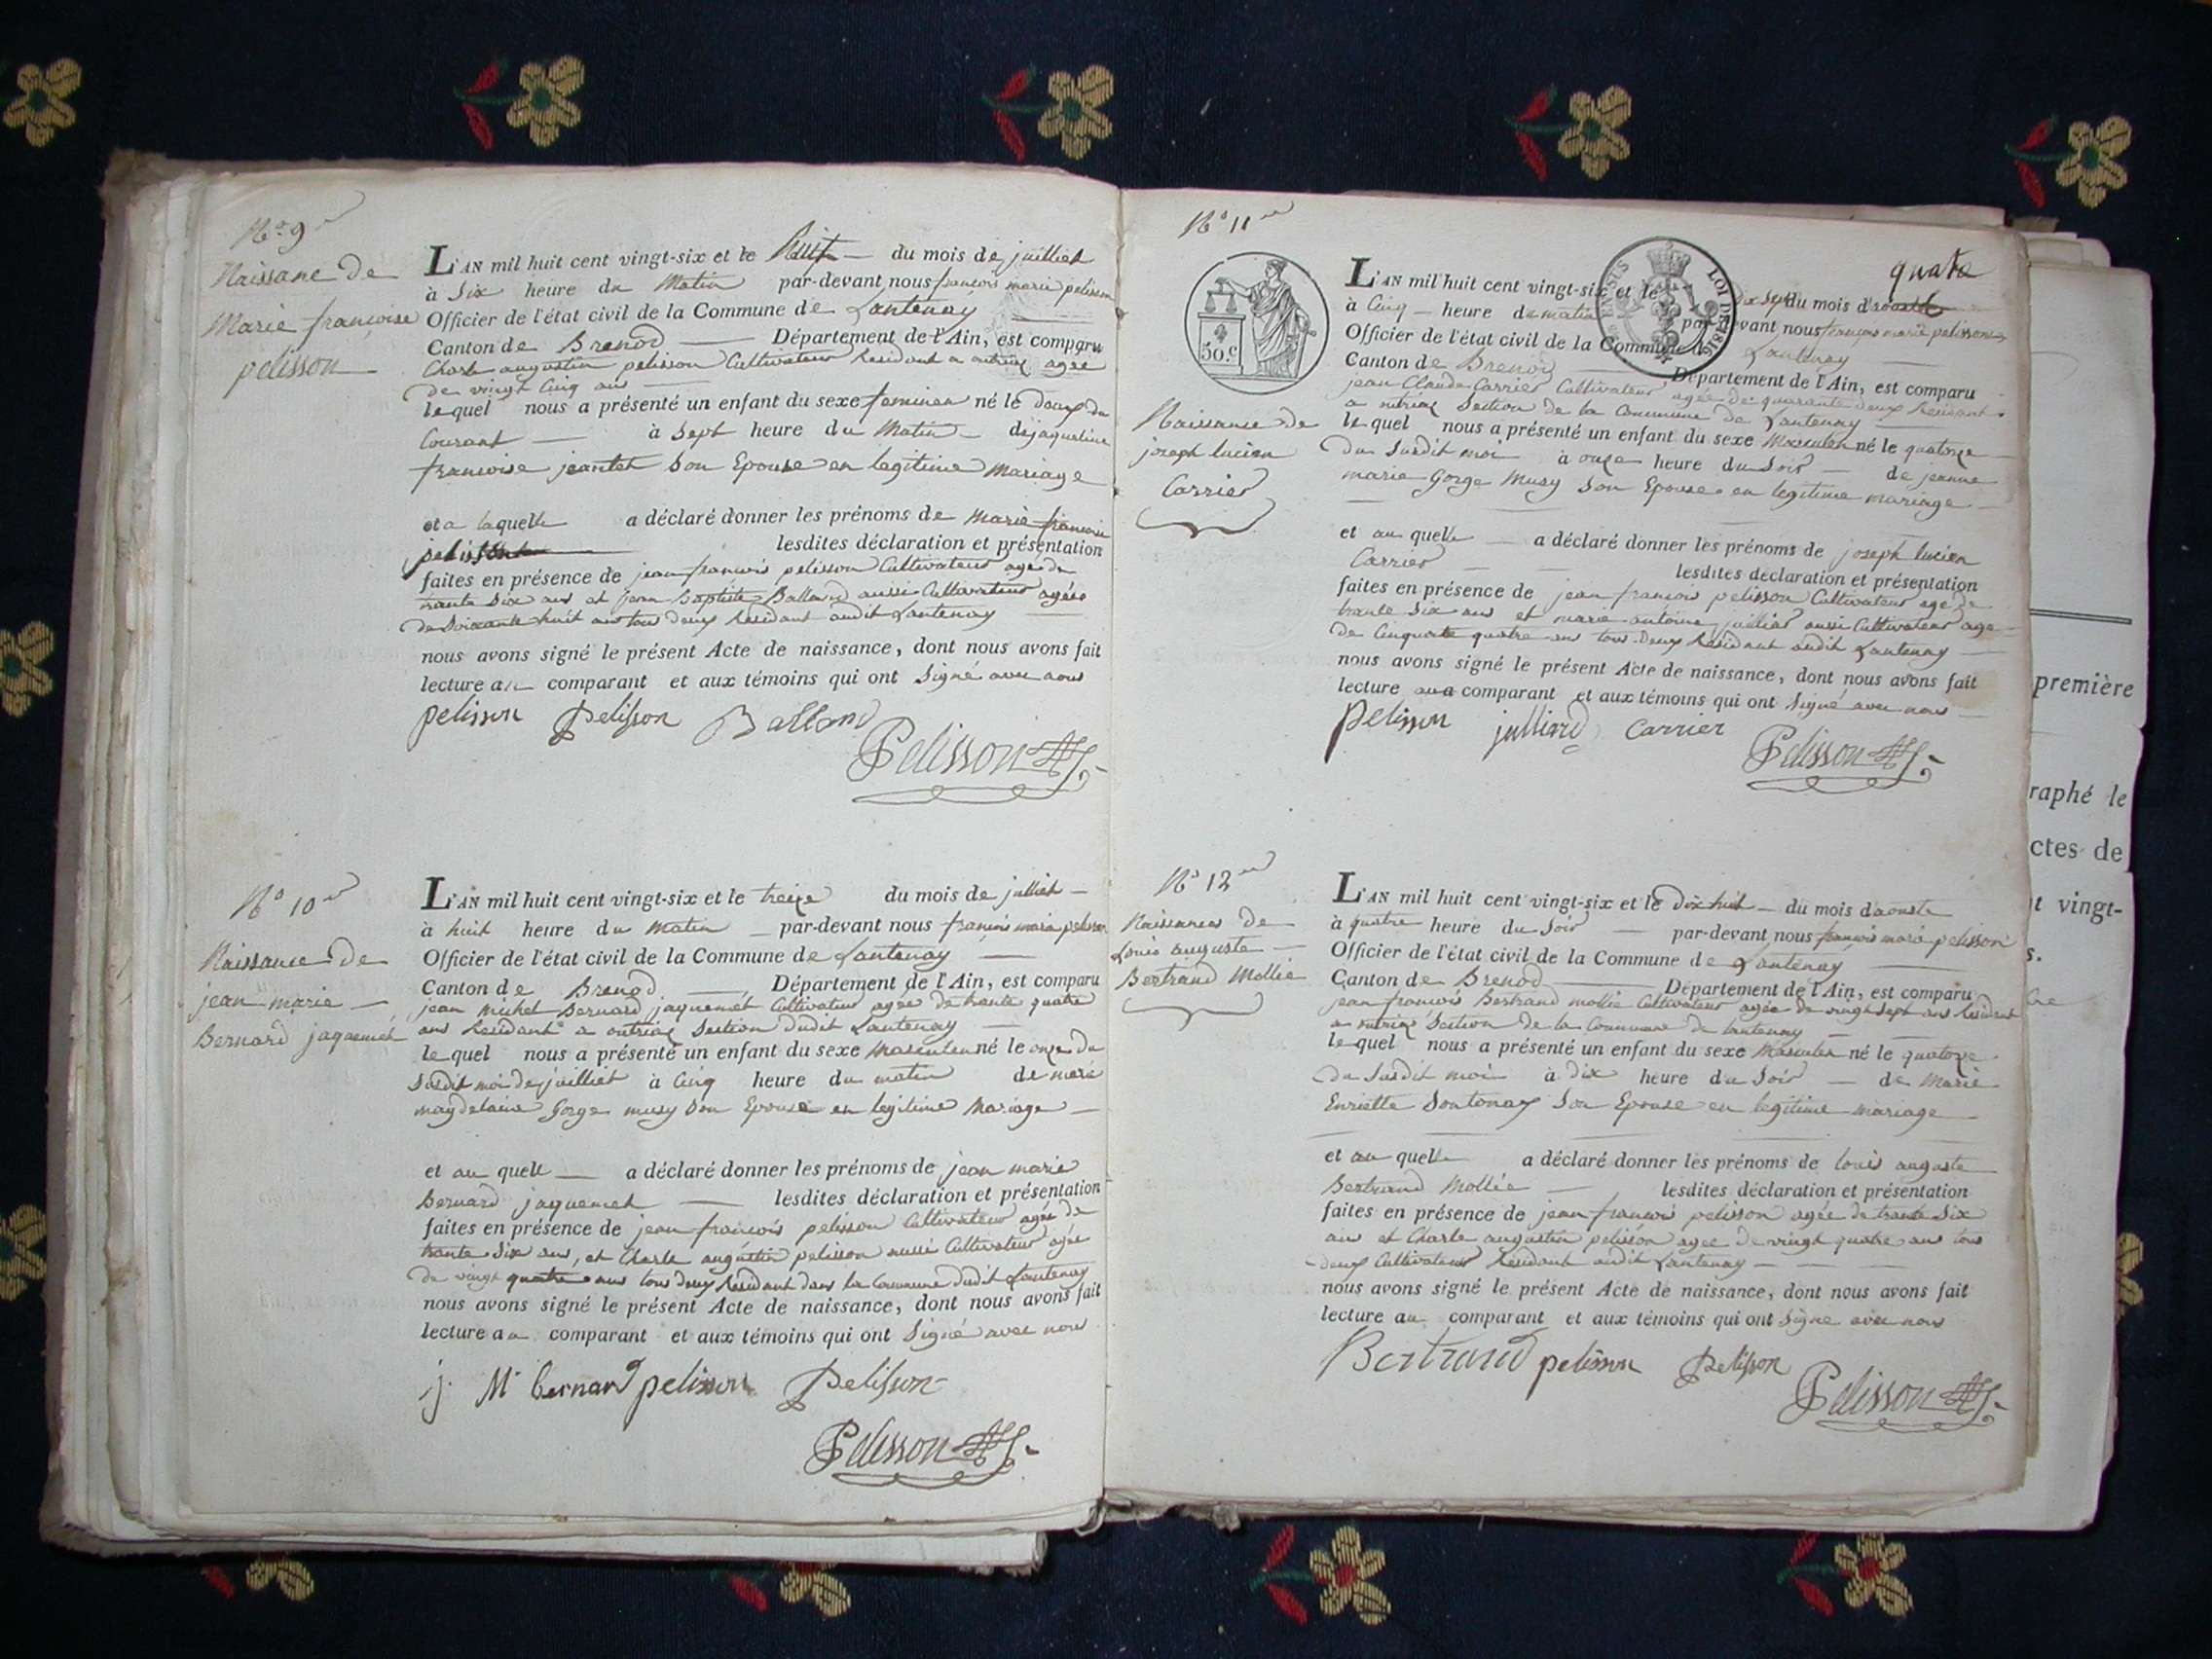 No 9
Naissane de
Marie françoise
pelisson
L'AN mil huit cent vingt-six et le huit du mois de juilliet
à Six heure du Matin par-devant nous françois marie pelisson
Officier de l'état civil de la Commune de Lantenay
Canton de Brenod Département de l'Ain, est comparu
Charle augustin pelisson Cultivateur Residant a outriaz agée
de vingt Cinq ans
lequel nous a présenté un enfant du sexe feminen né le deux du
Courant à Sept heure du Matin de jaqueline
francoise jeantet Son Epouse en legitime Mariage
et a laquelle a déclaré donner les prénoms de Marie francoise
pelisson lesdites déclaration et présentation
faites en présence de jean francois pelisson Cultivateur agé de
trante Six ans et jean Baptiste Balland aussi Cultivateur agée
de Soixante huit ans tous deux Residant audit Lantenay
nous avons signé le présent Acte de naissance, dont nous avons fait
lecture au comparant et aux témoins qui ont Signé avec nous
pelisson pelisson Balland
Pelisson
No 10
Naissance de
jean marie
Bernard jaquemet
L'AN mil huit cent vingt-six et le treize du mois de julliet
à huit heure du Matin par-devant nous francois marie pelisson
Officier de l'état civil de la Commune de Lantenay
Canton de Brenod Département de l'Ain, est comparu
jean michel Bernard jaquemet Cultivateur agée de trante quatre
ans Residant a outriaz Section dudit Lantenay
lequel nous a présenté un enfant du sexe Masculen né le onze du
Susdit moi de juilliet à Cinq heure du matin de marie
magdelaine Gorge musy Son Epouse en legitime Mariage
et au quell a déclaré donner les prénoms de jean marie
Bernard jaquemet lesdites déclaration et présentation
faites en présence de jean francois pelisson Cultivateur agée de
trante Six ans, et Charle augustin pelisson aussi Cultivateur agée
de vingt quatre ans tous deux Residant dans la Commune dudit Lantenay
nous avons signé le présent Acte de naissance, dont nous avons fait
lecture au comparant et aux témoins qui ont Signé avec nous
j. M. bernard pelisson pelisson
Pelisson
No 11
50.C
LOI DE 1816
quatre
Naissance de
joseph lucien
Carrier
L'AN mil huit cent vingt-six et le dix Sept du mois d'aoust
à Cinq heure du matin par-devant nous françois marie pelisson
Officier de l'état civil de la Commune de Lantenay
Canton de Brenod Département de l'Ain, est comparu
jean Claude Carrier Cultivateur agée de quarante deux Residant
a outriaz Section de la Commune de Lantenay
lequel nous a présenté un enfant du sexe Masculen né le quatorze
du Susdit moi à onze heure du Soir de jeanne
marie Gorge Musy Son Epouse en legitime mariage
et au quelle a déclaré donner les prénoms de joseph lucien
Carrier lesdites déclaration et présentation
faites en présence de jean francois pelisson Cultivateur agé de
trante Six ans et marie antoine julliard aussi Cultivateur age
de Cinquate quatre ans tous deux Residant audit Lantenay
nous avons signé le présent Acte de naissance, dont nous avons fait
lecture au comparant et aux témoins qui ont Signé avec nous
pelisson julliard Carrier
Pelisson
No 12
Naissances de
Louis auguste
Bertrand Mollie
L'AN mil huit cent vingt-six et le dix huit du mois d'aouste
à quatre heure du Soir par-devant nous francois marie pelisson
Officier de l'état civil de la Commune de Lantenay
Canton de Brenod Département de l'Ain, est comparu
jean francois Bertrand mollie Cultivateur agée de vingt Sept ans Residant
a outriaz Section de la Commune de lantenay
lequel nous a présenté un enfant du sexe Masculen né le quatorze
du Susdit moi à dix heure du Soir de Marie
Enriette Sontonax Son Epouse en legitime mariage
et au quelle a déclaré donner les prénoms de louis auguste
Bertrand Mollie lesdites déclaration et présentation
faites en présence de jean francois pelisson agée de trante Six
ans et Charle augustin pelisson agee de vingt quatre ans tous
deux Cultivateur Residant audit Lantenay
nous avons signé le présent Acte de naissance, dont nous avons fait
lecture au comparant et aux témoins qui ont Signe avec nous
Bertrand pelisson pelisson
Pelisson
première
raphé le
ctes de
t vingt-
s.